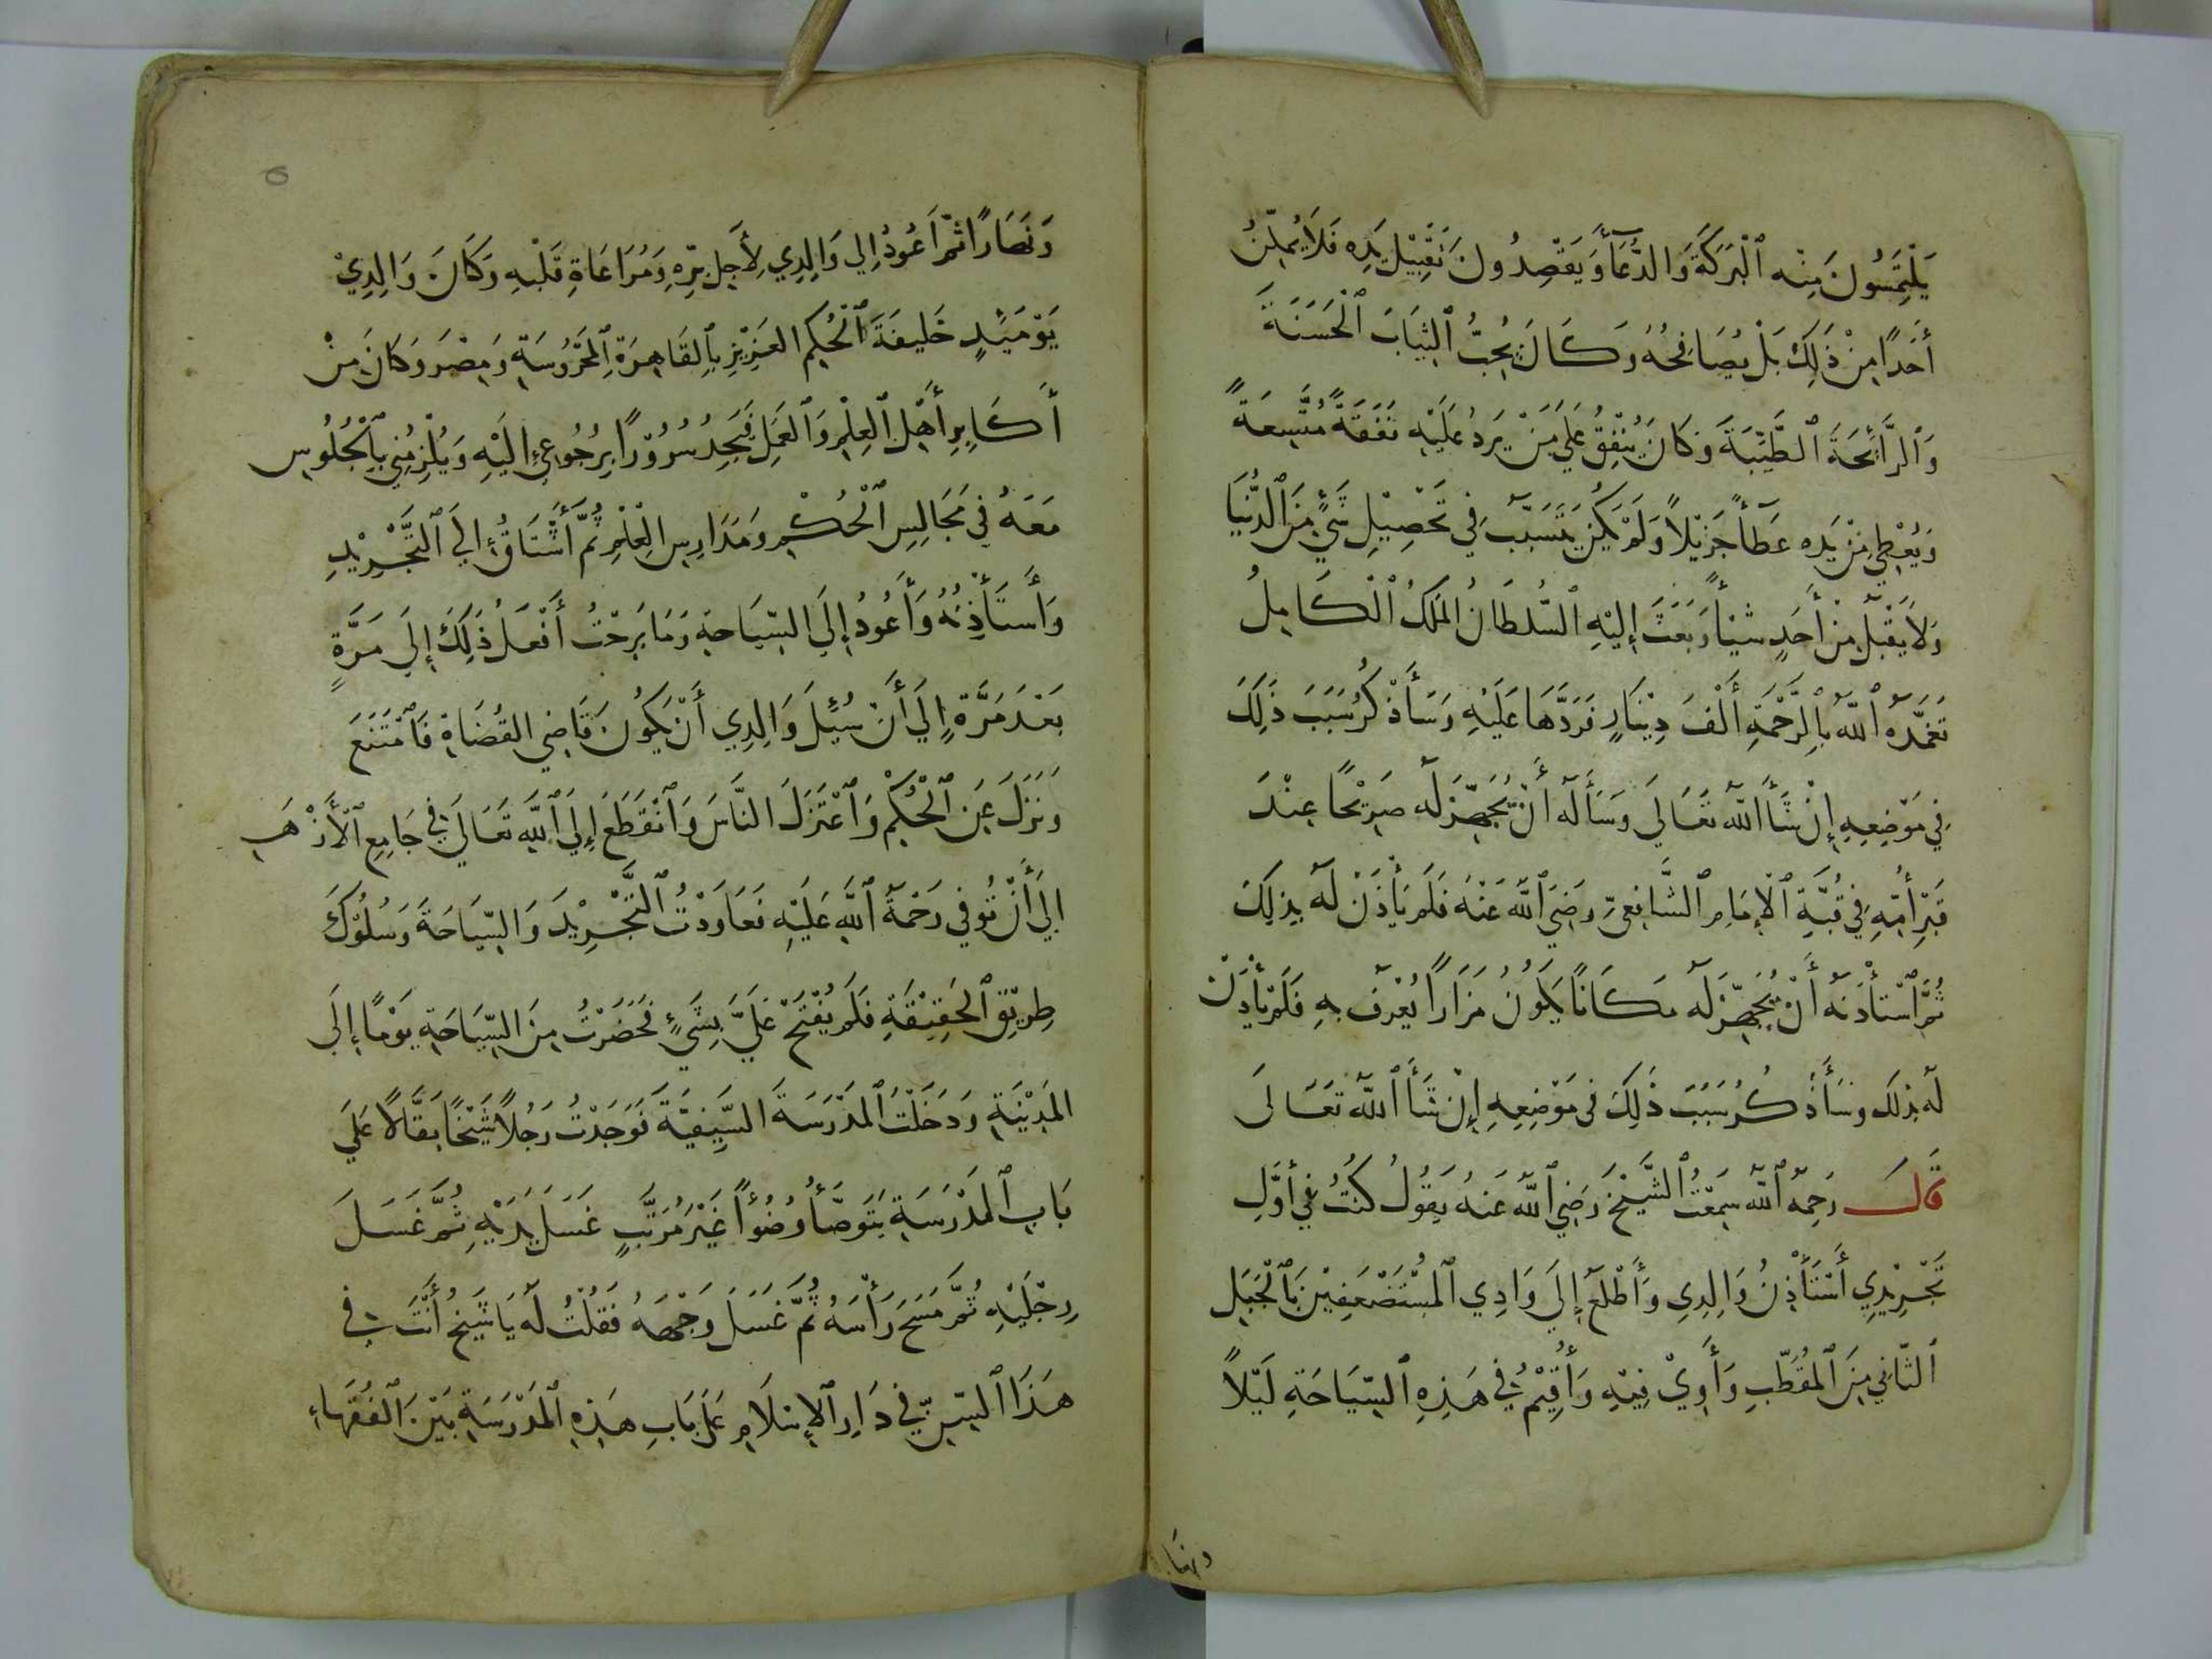 يَلْتَمِسُونَ مِنْه ٱلْبَرَكَةَ وَالدُّعَآءَ وَيَقْصِدُونَ تَقْبِيْلَ يَدِه فَلَا يُمَكِّنُ
أَحَدًا مِنْ ذَلِكَ بَلْ يُصَافِحُهُ وَكَانَ يُحِبُّ ٱلثِيَابَ ٱلْحَسَنَةَ
وَٱلرَّائِحَةَ ٱلطَّيِّبَةَ وَكَانَ يُنْفِقُ عَلَي مَنْ يَرِدُ عَلَيْهِ نَفَقَةً مُتَّسِعَةً
وَيُعْطِي مِنْ يَدِه عَطَآءً جَزِيْلاً وَلَمْ يَكُنْ يَتَسَبَّبُ فِي تَحْصِيْلِ شَيْءٍ مِنَ ٱلدُّنْيَا
وَلاَ يَقْبَلُ مِنْ أَحَدٍ شَيْئاً وَبَعَثَ إِلَيْهِ ٱلسُّلطَانُ المَلِكُ ٱلْكَامِلُ
تَغَمَّدَهُ ٱللّٰهُ بِالرَّحْمَةِ أَلْفَ دِيْنَارٍ فَرَدَّهَا عَلَيْهِ وَسَأَذْكُرُ سَبَبَ ذَلِكَ
فِي مَوْضِعِهِ إِنْ شَآءَ اللّٰهُ تَعَالَى وَسَأَلَهُ أَنْ يُجَهِّزَ لَه ضَرِيْحًا عِنْدَ
قَبْرِ أُمِّهِ فِي قُبَّةِ ٱلْإِمَامِ ٱلشَّافِعِيِّ رَضِيَ ٱللّٰهُ عَنْهُ فَلَمْ يَأْذَنْ لَهُ بِذلِكَ
ثُمَّ ٱسْتَأْذَنَهُ أَنْ يُجَهِّزَ لَه مَكَانًا يَكُونُ مَزَارًا يُعْرَفُ بِهِ فَلَمْ يَأْذَنْ
لَهُ بِذَلِكَ وَسَأَذْكُرُ سَبَبَ ذَلِكَ فِى مَوْضِعِهِ إِنْ شَآءَ ٱللّٰهُ تَعَالَى
قَالَ رَحِمَهُ ٱللّٰهُ سَمِعْتُ ٱلشَّيْخَ رَضِيَ ٱللّٰهُ عَنهُ يَقُولُ كُنْتُ فِي أَوَّلِ
تَجْرِيْدِي أَسْتَأْذِنُ وَالِدِي وَأَطْلَعُ إِلَى وَادِي ٱلْمُسْتَضْعَفِيْنَ بِٱلْجَبَلِ
ٱلثَّانِي مِنَ ٱلْمُقَطَّبِ وَأَوِيْ فِيْهِ وَأُقِيْمُ فِي هَذِهِ ٱلسِّيَاحَةِ لَيْلاً
ونهَا
٥
وَنَهَارًا ثُمَّ أَعُودُ إِلي وَالِدِي لِأَجْلِ بِرِّهِ وَمُرَاعَاةِ قَلْبِهِ وَكَانَ وَالِدِيْ
يَوْمَئِذٍ خَلِيفَةَ ٱلْحُكْمِ العَزِيْزِ بِٱلقَاهِرَةِ ٱلمَحْرُوسَةِ وَمِصْرَ وَكَانَ مِنْ
أَكَابِرِ أَهْلِ ٱلعِلْمِ وَٱلعَمَلِ فَيَجِدُ سُرُوْرًا بِرُجُوعِي إِلَيْهِ وَيُلْزِمُنِي بِٱلْجُلُوسِ
مَعَهُ فِي مَجَالِسِ ٱلْحُكْمِ وَمَدَارِسِ ٱلْعِلْمِ ثُمَّ أَشْتَاقُ إِلَي ٱلتَّجْرِيْدِ
وَأَسْتَأْذِنُهُ وَأَعُودُ إِلَي السِّيَاحَةِ وَمَا بَرِحْتُ أَفْعَلُ ذَلِكَ إِلَي مَرَّةٍ
بَعْدَ مَرَّةٍ إِلَي أَنْ سُئِلَ وَالِدِي أَنْ يَكُونَ قَاضِي القُضَاةِ فَٱمْتَنَعَ
وَنَزَلَ عَنِ ٱلْحُكْمِ وَٱعْتَزَلَ النَّاسَ وَٱنْقَطَعَ إِلَي ٱللّٰهِ تَعَالَي فِي جَامِعِ ٱلْأَزْهَرِ
إِلَي أَنْ تُوُفِيَ رَحْمَةُ ٱللّٰهِ عَلَيْهِ فَعَاوَدْتُ ٱلتَّجْرِيْدَ وَالسِّيَاحَةَ وَسُلُوْكَ
طَرِيْقِ ٱلحَقِيْقَةِ فَلَمْ يُفْتَحْ عَلَيَّ بِشَيْءٍ فَحَضَرْتُ مِنَ السِّيَاحَةِ يَوْمًا إِلَي
المَدِيْنَةِ وَدَخَلْتُ ٱلمَدْرَسَةَ السَّيفِيَّةَ فَوَجَدْتُ رَجُلاً شَيْخًا بَقَّالًا عَلَي
بَابِ ٱلمَدْرَسَةِ يَتَوَضَّأُ وُضُوْأً غَيْرَ مُرَتَّبٍ غَسَلَ يَدَيْهِ ثُمَّ غَسَلَ
رِجْلَيْهِ ثُمَّ مَسَحَ رَأْسَهُ ثُمَّ غَسَلَ وَجْهَهُ فَقُلْتُ لَهُ يَا شَيْخُ أَنْتَ فِي
هَذَا ٱلسِّنِّ فِي دَارِ ٱلإِسْلَامِ عَلَى بَابِ هَذِهِ ٱلْمَدْرَسَةِ بَيْنَ ٱلفُقَهَاءِ